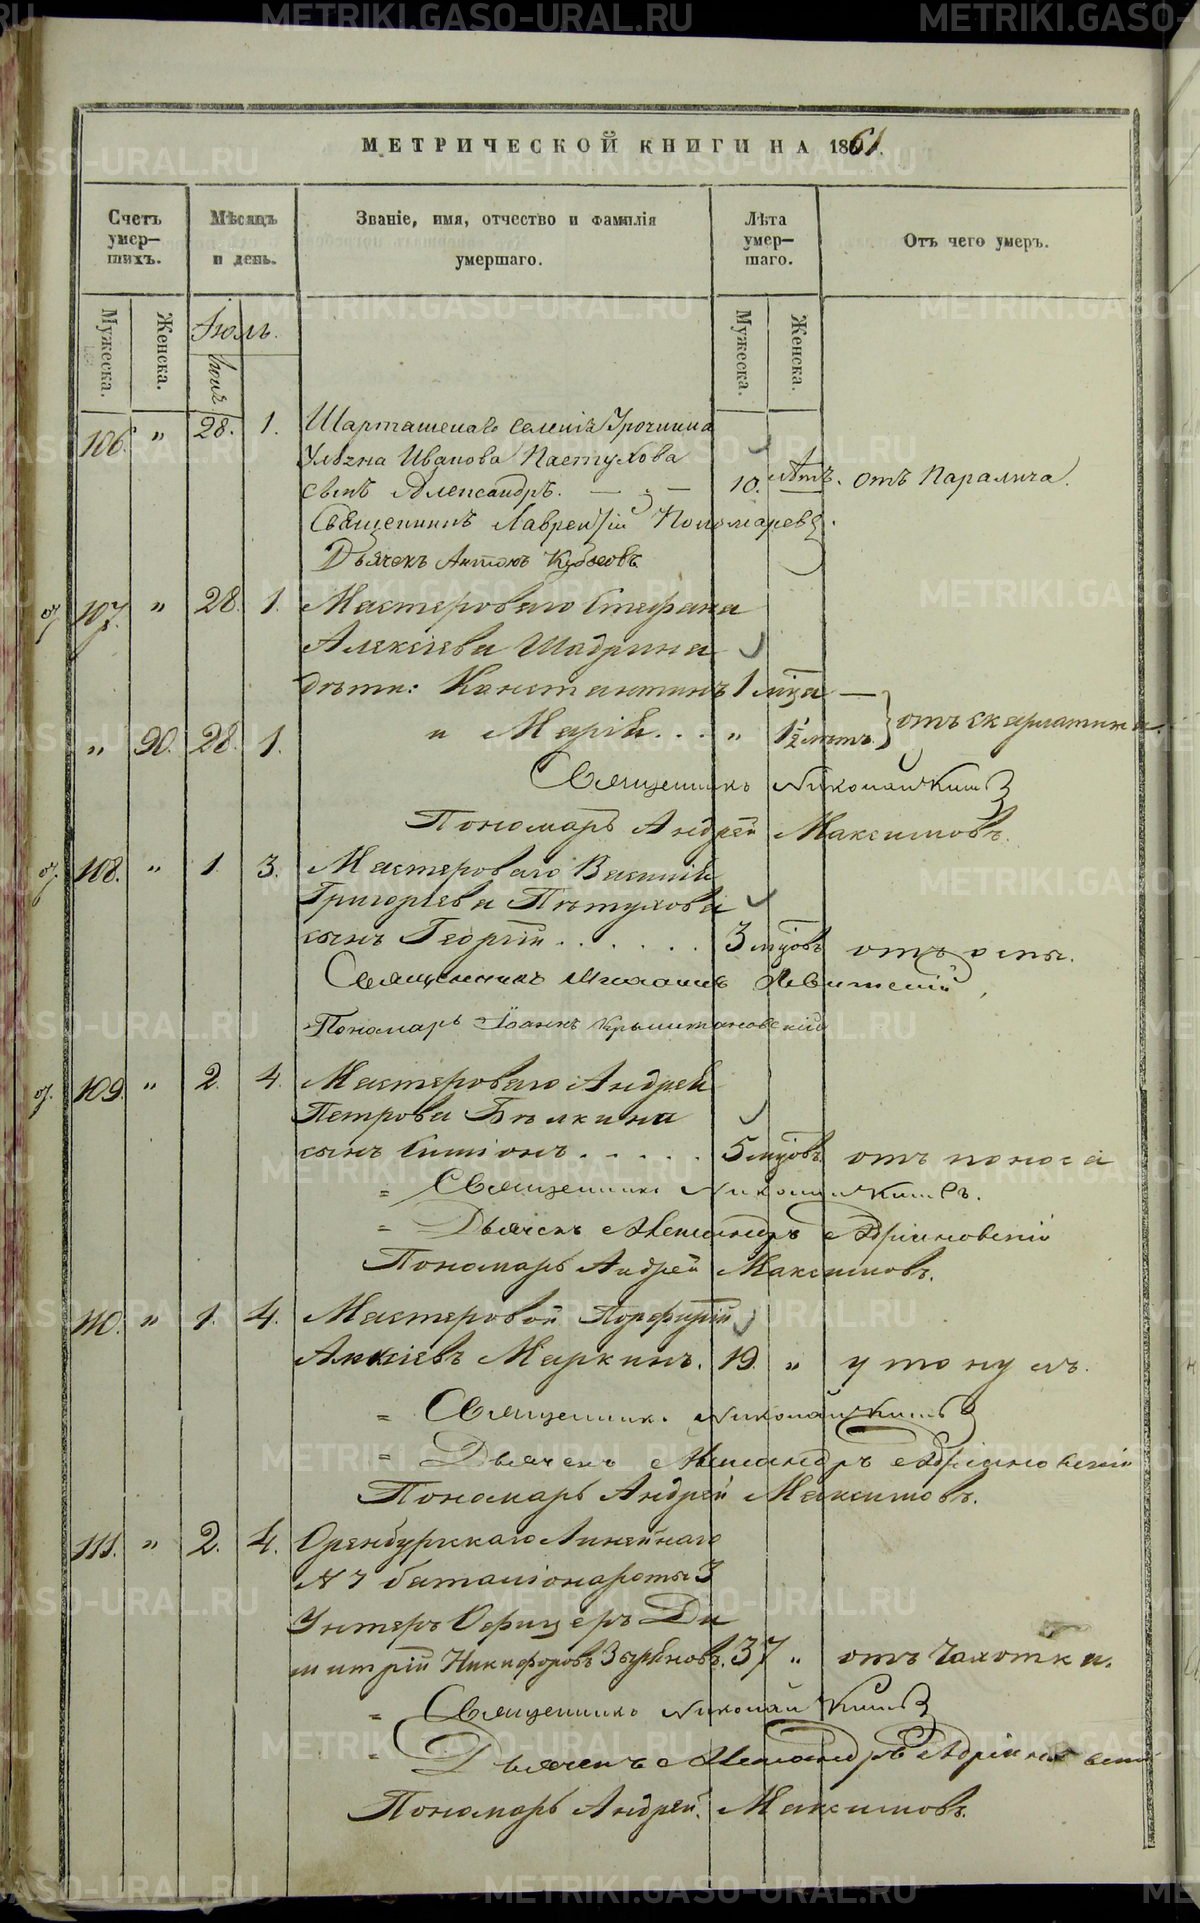 МЕТРИЧЕСКОЙ КНИГИ НА 1861.
Счетъ умер-шихъ.
Мѣсяцъ и день.
Званіе, имя, отчество и фамилія умершаго.
Лѣта умер-шаго.
Отъ чего умеръ.
Мужеска. Женска. Іюль. Мужеска. Женска.
Іюнь
106. " 28. 1. Шарташскаго селенія Урочника
Ивана Пастухова
сынъ Александръ. — " — 10. лѣтъ. отъ Паралича.
Священникъ Лаврентій Пономаревъ.
Дьячекъ Антонъ
107. " 28. 1. Мастероваго Стефана
Алексіева Шадрина
дѣти: Константинъ 1 мца —
" 90. 28. 1. и Марія... " 1½ лѣтъ. отъ скарлатины.
Священникъ Николай
Пономарь Андрей Максимовъ.
108. " 1. 3. Мастероваго Василія
Григорьева Пѣтухова
сынъ Георгій...... 3 мцовъ отъ оспы.
Священникъ Михаилъ Левитскій
Пономарь Іоаннъ
109. " 2. 4. Мастероваго Андрея
Петрова Бѣлкина
сынъ Симіонъ..... 5 мцовъ отъ поноса
= Священникъ Николай
= Дьячекъ Александръ Адріановскій
Пономарь Андрей Максимовъ.
110. " 1. 4. Мастеровой Порфирій
Алексіевъ Маркинъ. 19. " утонулъ.
= Священникъ Николай
= Дьячекъ Александръ Адріановскій
Пономарь Андрей Максимовъ.
111. " 2. 4. Оренбургскаго Линейнаго
баталіона роты 3
Унтеръ Офицеръ Ди
митрій Никифоровъ 37 " отъ Чахотки.
= Священникъ Николай
= Дьячекъ Александръ Адріановскій
Пономарь Андрей Максимовъ.
METRIKI.GASO-URAL.RU